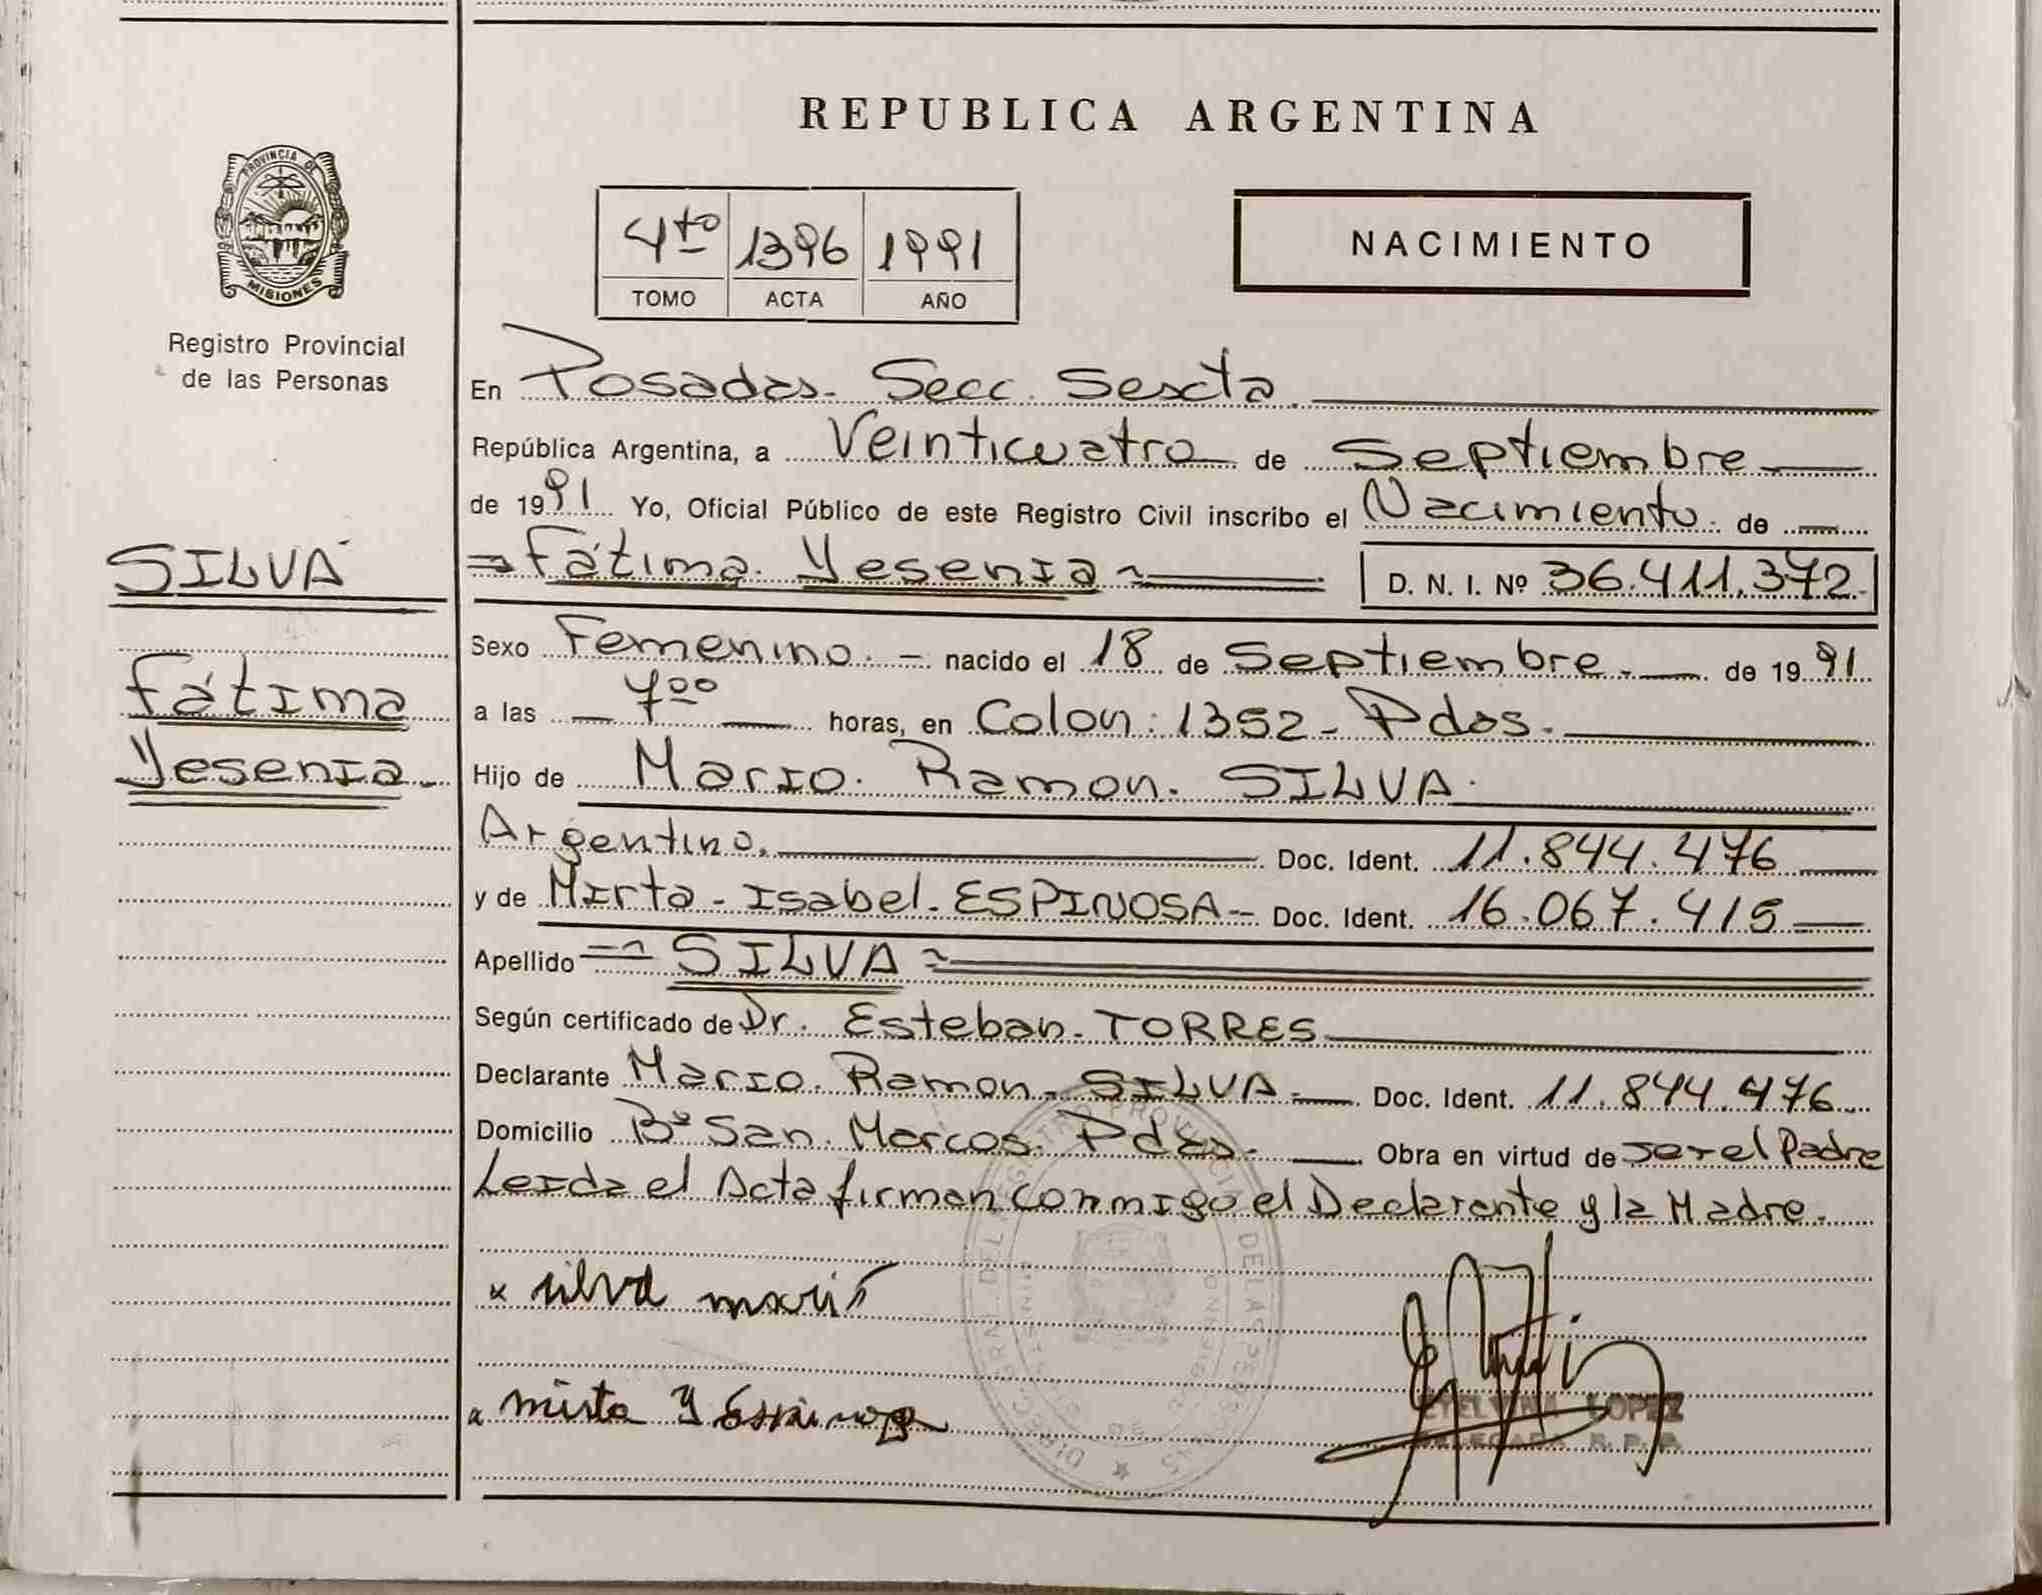 REPUBLICA ARGENTINA
PROVINCIA DE
MISIONES
Registro Provincial
de las Personas
4to 1396 1991
TOMO ACTA AÑO
NACIMIENTO
En Posadas. Secc. Sexta
República Argentina, a Veinticuatro de Septiembre
de 1991 Yo, Oficial Público de este Registro Civil inscribo el Nacimiento. de
Fátima. Yesenia D. N. I. Nº 36.411.372.
SILVA
Fátima
Yesenia
Sexo Femenino. nacido el 18 de Septiembre. de 1991
a las 7 00 horas, en Colon. 1352 - Pdas.
Hijo de Mario. Ramon. SILVA.
Argentino. Doc. Ident. 11.844.476
y de Mirta - Isabel. ESPINOSA - Doc. Ident. 16.067.415
Apellido SILVA
Según certificado de Dr. Esteban. TORRES
Declarante Mario. Ramon. SILVA Doc. Ident. 11.844.476
Domicilio Bº San. Marcos. Pdas. Obra en virtud de ser el Padre
Leida el Acta firman conmigo el Declarante y la Madre.
x silva mario
x mirta Y Espinosa
LOPEZ
DELEGADA R. P. P.